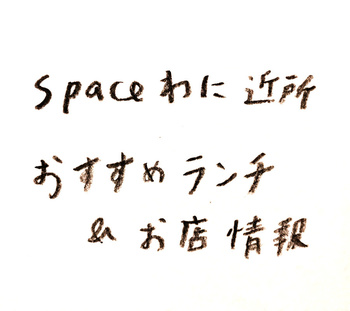 spaceわに 近所
おすすめランチ
& お店情報